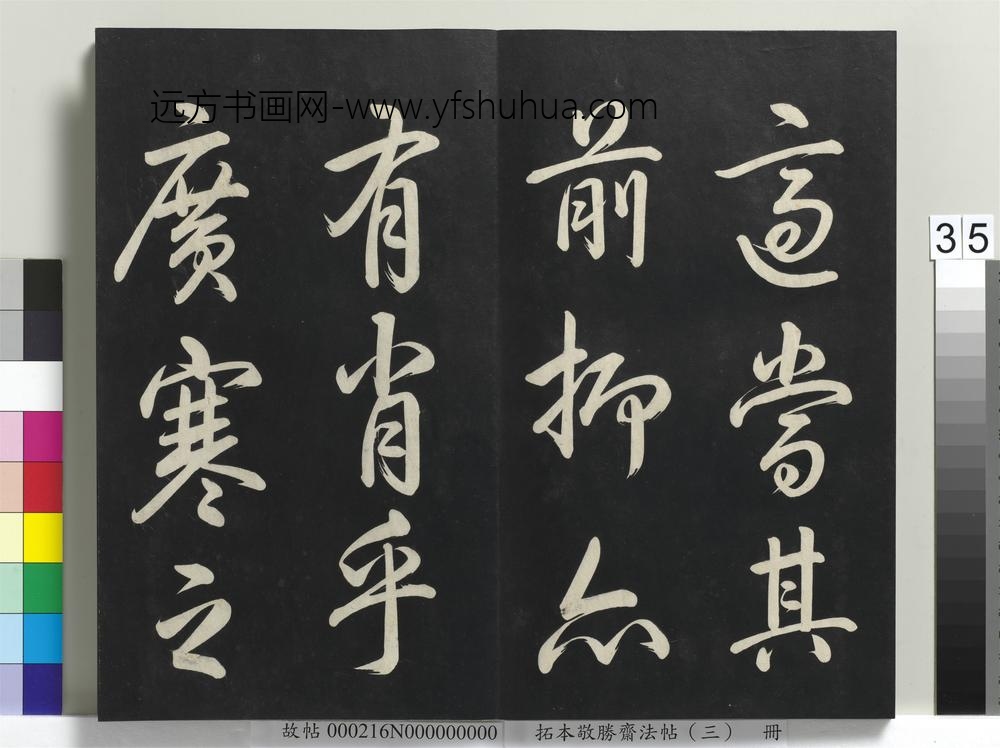 远方书画网-www.yfshuhua.com
適當其
前抑亦
有肖乎
廣寒之
35
故帖 000216N000000000 拓本敬勝齋法帖（三） 冊